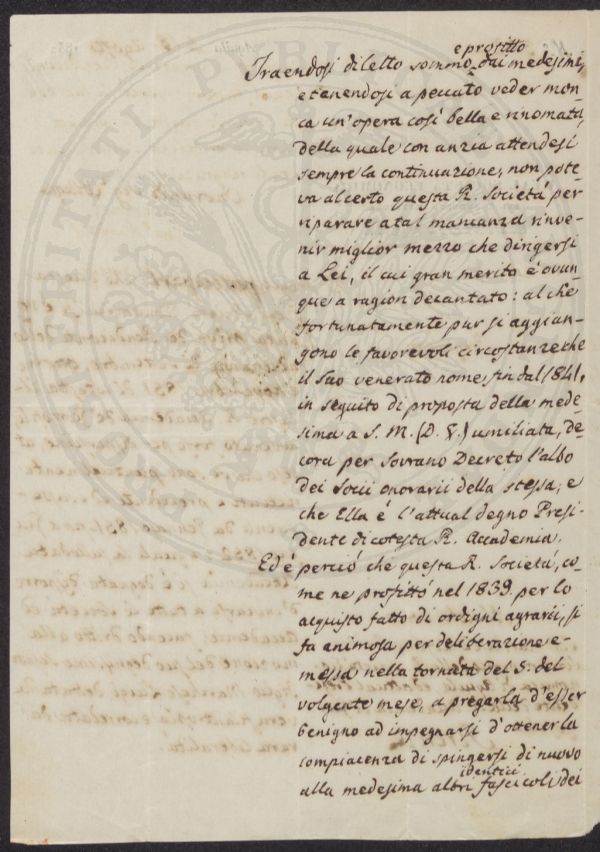 e profitto
Traendosi diletto sommo dai medesimi,
e tenendosi a peccato veder mon-
ca un'opera così bella e rinomata,
della quale con anzia attendesi
sempre la continuazione, non pote-
va al certo questa R. Società per
riparare a tal mancanza rinve-
nir miglior mezzo che dirigersi
a Lei, il cui gran merito è ovun-
que a ragion decantato: al che
fortunatamente pur si aggiun-
gono le favorevoli circostanze che
il suo venerato nome fin dal 1841,
in seguito di proposta della mede-
sima a S. M. (D. G.) umiliata, de-
cora per Sovrano Decreto l'albo
dei Socii onorarii della stessa; e
che Ella è l'attual degno Presi-
dente di cotesta R. Accademia.
Ed è perciò che questa R. Società, co-
me ne profittò nel 1839. per lo
acquisto fatto di ordigni agrarii, si
fa animosa per deliberazione e-
messa nella tornata del 5. del
volgente mese, a pregarla d'esser
benigno ad impegnarsi d'ottener la
compiacenza di spingersi di nuovo
identici
alla medesima altri fascicoli dei